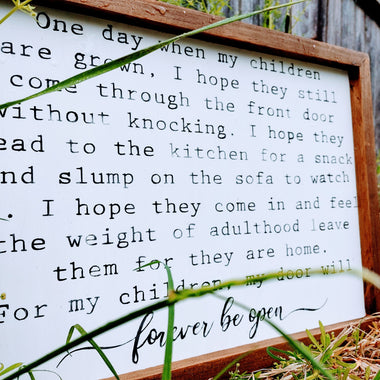 One day when my children
are grown, I hope they still
come through the front door
without knocking. I hope they
head to the kitchen for a snack
and slump on the sofa to watch
. I hope they come in and feel
the weight of adulthood leave
them for they are home.
For my children, my door will
forever be open